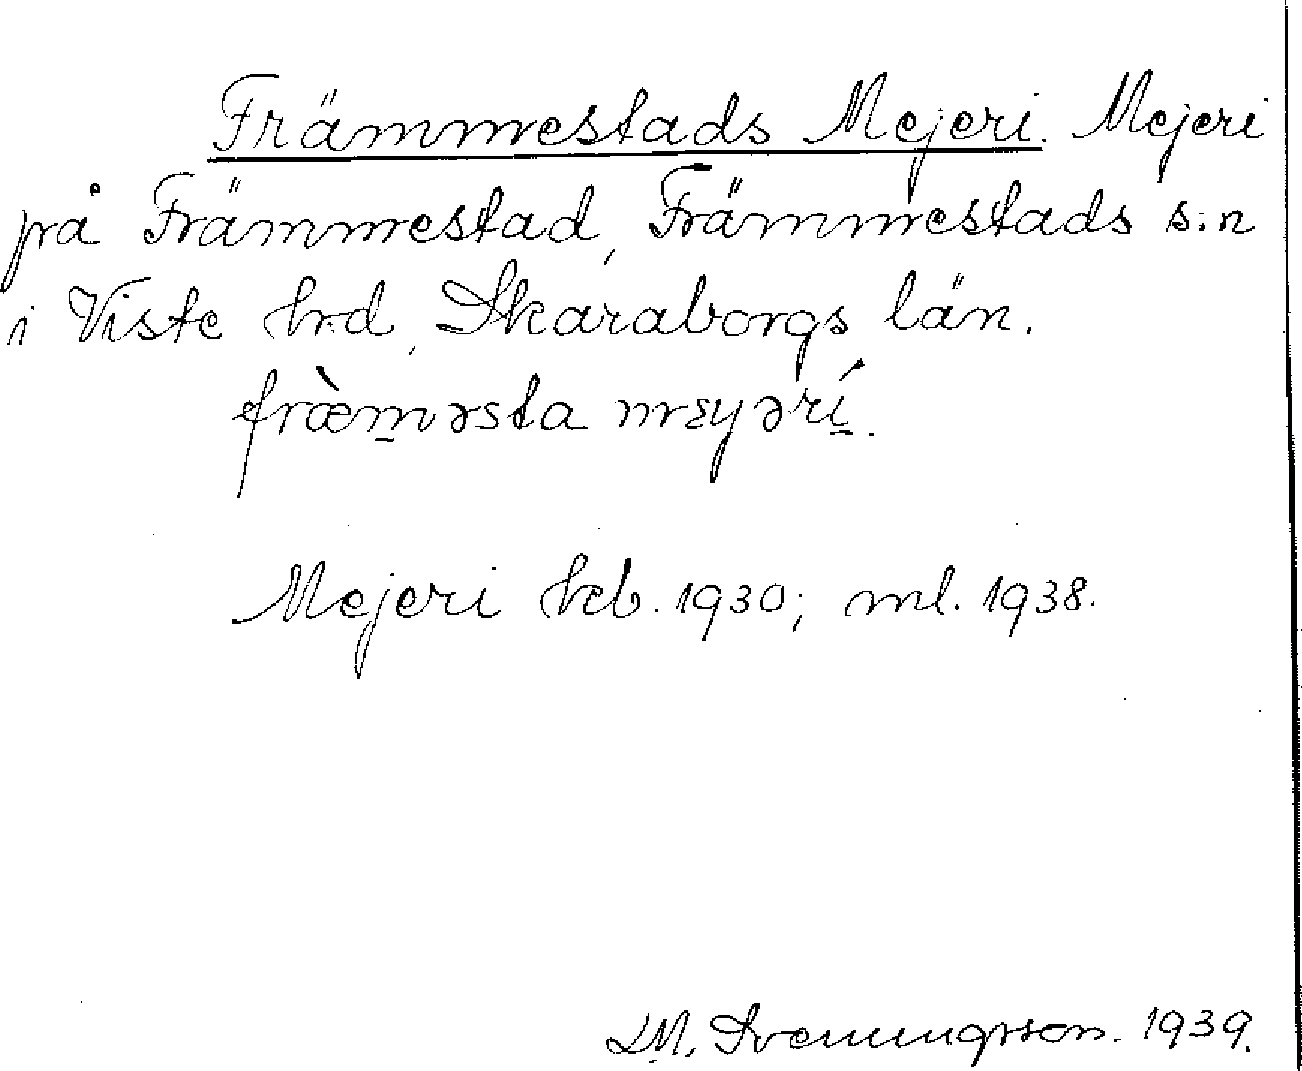 Främmestads Mejeri. Mejeri
på Främmestad, Främmestads s:n
i Viste hrd, Skaraborgs län.
fræ̀m̲əsta mɛyərí̲.
Mejeri keb. 1930; ml. 1938.
D.M. Svenungsson. 1939.